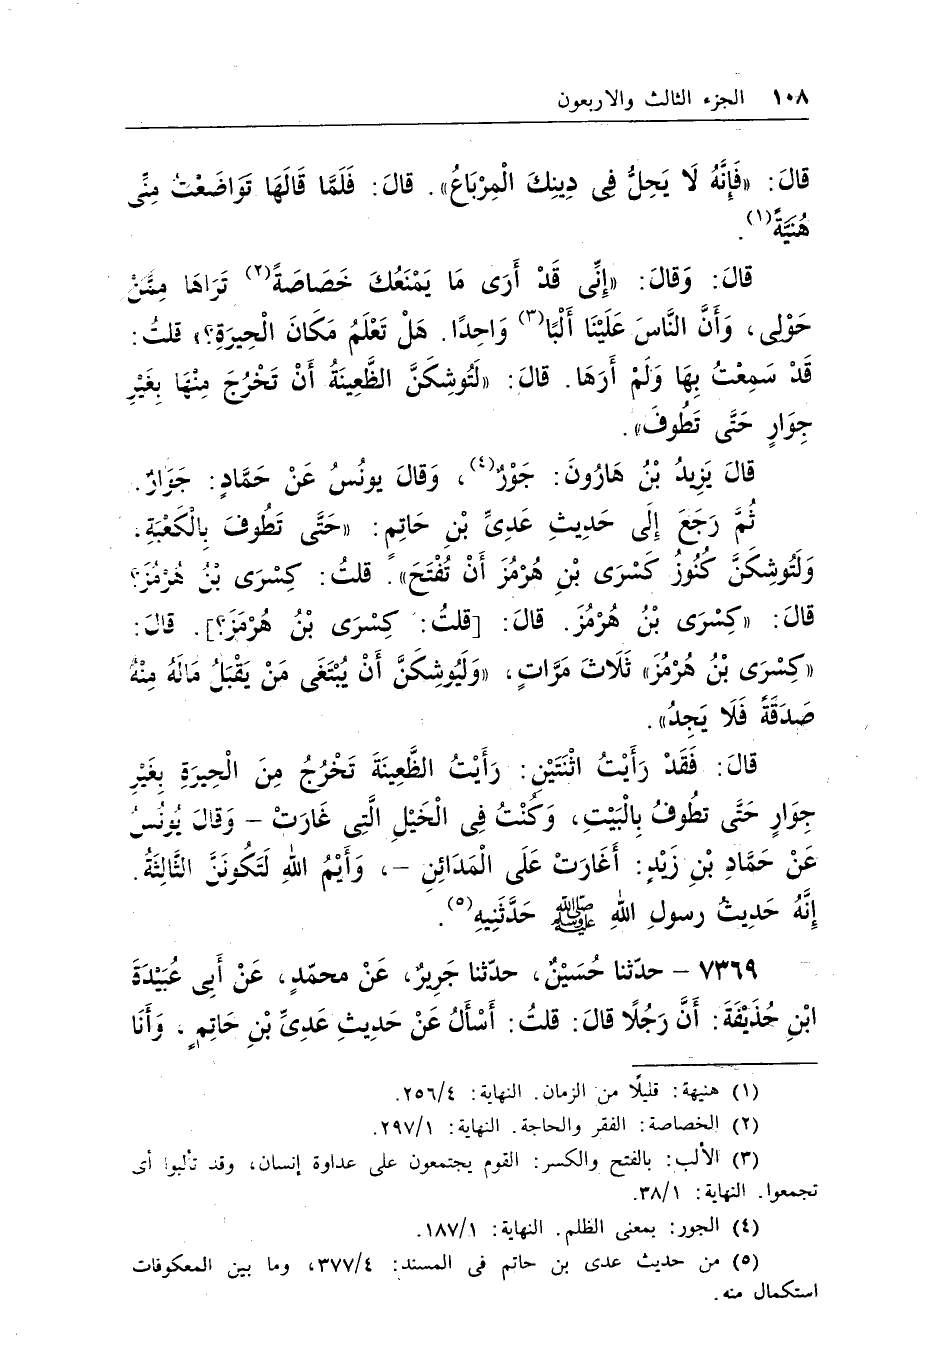 ١٠٨ الجزء الثالث والاربعون
قالَ: «فَإِنَّهُ لَا يَحِلُّ فِى دِينِكَ الْمِرْبَاعُ». قالَ: فَلَمَّا قَالَهَا تَوَاضَعْتُ مِنِّى
هُنَيَّةً(١).
قالَ: وَقالَ: «إِنِّى قَدْ أَرَى مَا يَمْنَعُكَ خَصَاصَةً(٢) تَرَاهَا مِمَّنْ
حَوْلِى، وَأَنَّ النَّاسَ عَلَيْنَا أَلْبًا(٣) وَاحِدًا. هَلْ تَعْلَمُ مَكَانَ الْحِيرَةِ؟» قلتُ:
قَدْ سَمِعْتُ بِهَا وَلَمْ أَرَهَا. قالَ: «لَتُوشِكَنَّ الظَّعِينَةُ أَنْ تَخْرُجَ مِنْهَا بِغَيْرِ
جِوَارٍ حَتَّى تَطُوفَ».
قالَ يَزِيدُ بْنُ هَارُونَ: جَوْرٌ(٤)، وَقالَ يونُسُ عَنْ حَمَّادٍ: جَوَازٌ.
ثُمَّ رَجَعَ إِلَى حَدِيثِ عَدِىِّ بْنِ حَاتِمٍ: «حَتَّى تَطُوفَ بِالْكَعْبَةِ.
وَلَتُوشِكَنَّ كُنُوزُ كَسْرَى بْنِ هُرْمُزَ أَنْ تُفْتَحَ». قلتُ: كِسْرَى بْنُ هُرْمُزَ؟
قالَ: «كِسْرَى بْنُ هُرْمُزَ. قالَ: [قلتُ: كِسْرَى بْنُ هُرْمَزَ؟]. قالَ:
«كِسْرَى بْنُ هُرْمُزَ» ثَلَاثَ مَرَّاتٍ، «وَلَيُوشِكَنَّ أَنْ يُبْتَغَى مَنْ يَقْبَلُ مَالَهُ مِنْهُ
صَدَقَةً فَلَا يَجِدُ».
قالَ: فَقَدْ رَأَيْتُ اثْنَتَيْنِ: رَأَيْتُ الظَّعِينَةَ تَخْرُجُ مِنَ الْحِيرَةِ بِغَيْرِ
جِوَارٍ حَتَّى تطُوفُ بِالْبَيْتِ، وَكُنْتُ فِى الْخَيْلِ الَّتِى غَارَتْ - وَقالَ يُونُسُ
عَنْ حَمَّادِ بْنِ زَيْدٍ: أَغَارَتْ عَلَى الْمَدَائِنِ -، وَأَيْمُ اللهِ لَتَكُونَنَّ الثَّالِثَةُ.
إِنَّهُ حَدِيثُ رسولِ اللهِ ﷺ حَدَّثَنِيهِ(٥).
٧٣٦٩ - حدّثنا حُسَيْنٌ، حدّثنا جَرِيرٌ، عَنْ محمّدٍ، عَنْ أَبِى عُبَيْدَةَ
ابْنِ حُذَيْفَةَ: أَنَّ رَجُلًا قالَ: قلتُ: أَسْأَلُ عَنْ حَدِيثِ عَدِىِّ بْنِ حَاتِمٍ، وَأَنَا
(١) هنيهة: قليلًا من الزمان. النهاية: ٢٥٦/٤.
(٢) الخصاصة: الفقر والحاجة. النهاية: ٢٩٧/١.
(٣) الألب: بالفتح والكسر: القوم يجتمعون على عداوة إنسان، وقد تألبوا أى
تجمعوا. النهاية: ٣٨/١.
(٤) الجور: بمعنى الظلم. النهاية: ١٨٧/١.
(٥) من حديث عدى بن حاتم فى المسند: ٣٧٧/٤، وما بين المعكوفات
استكمال منه.